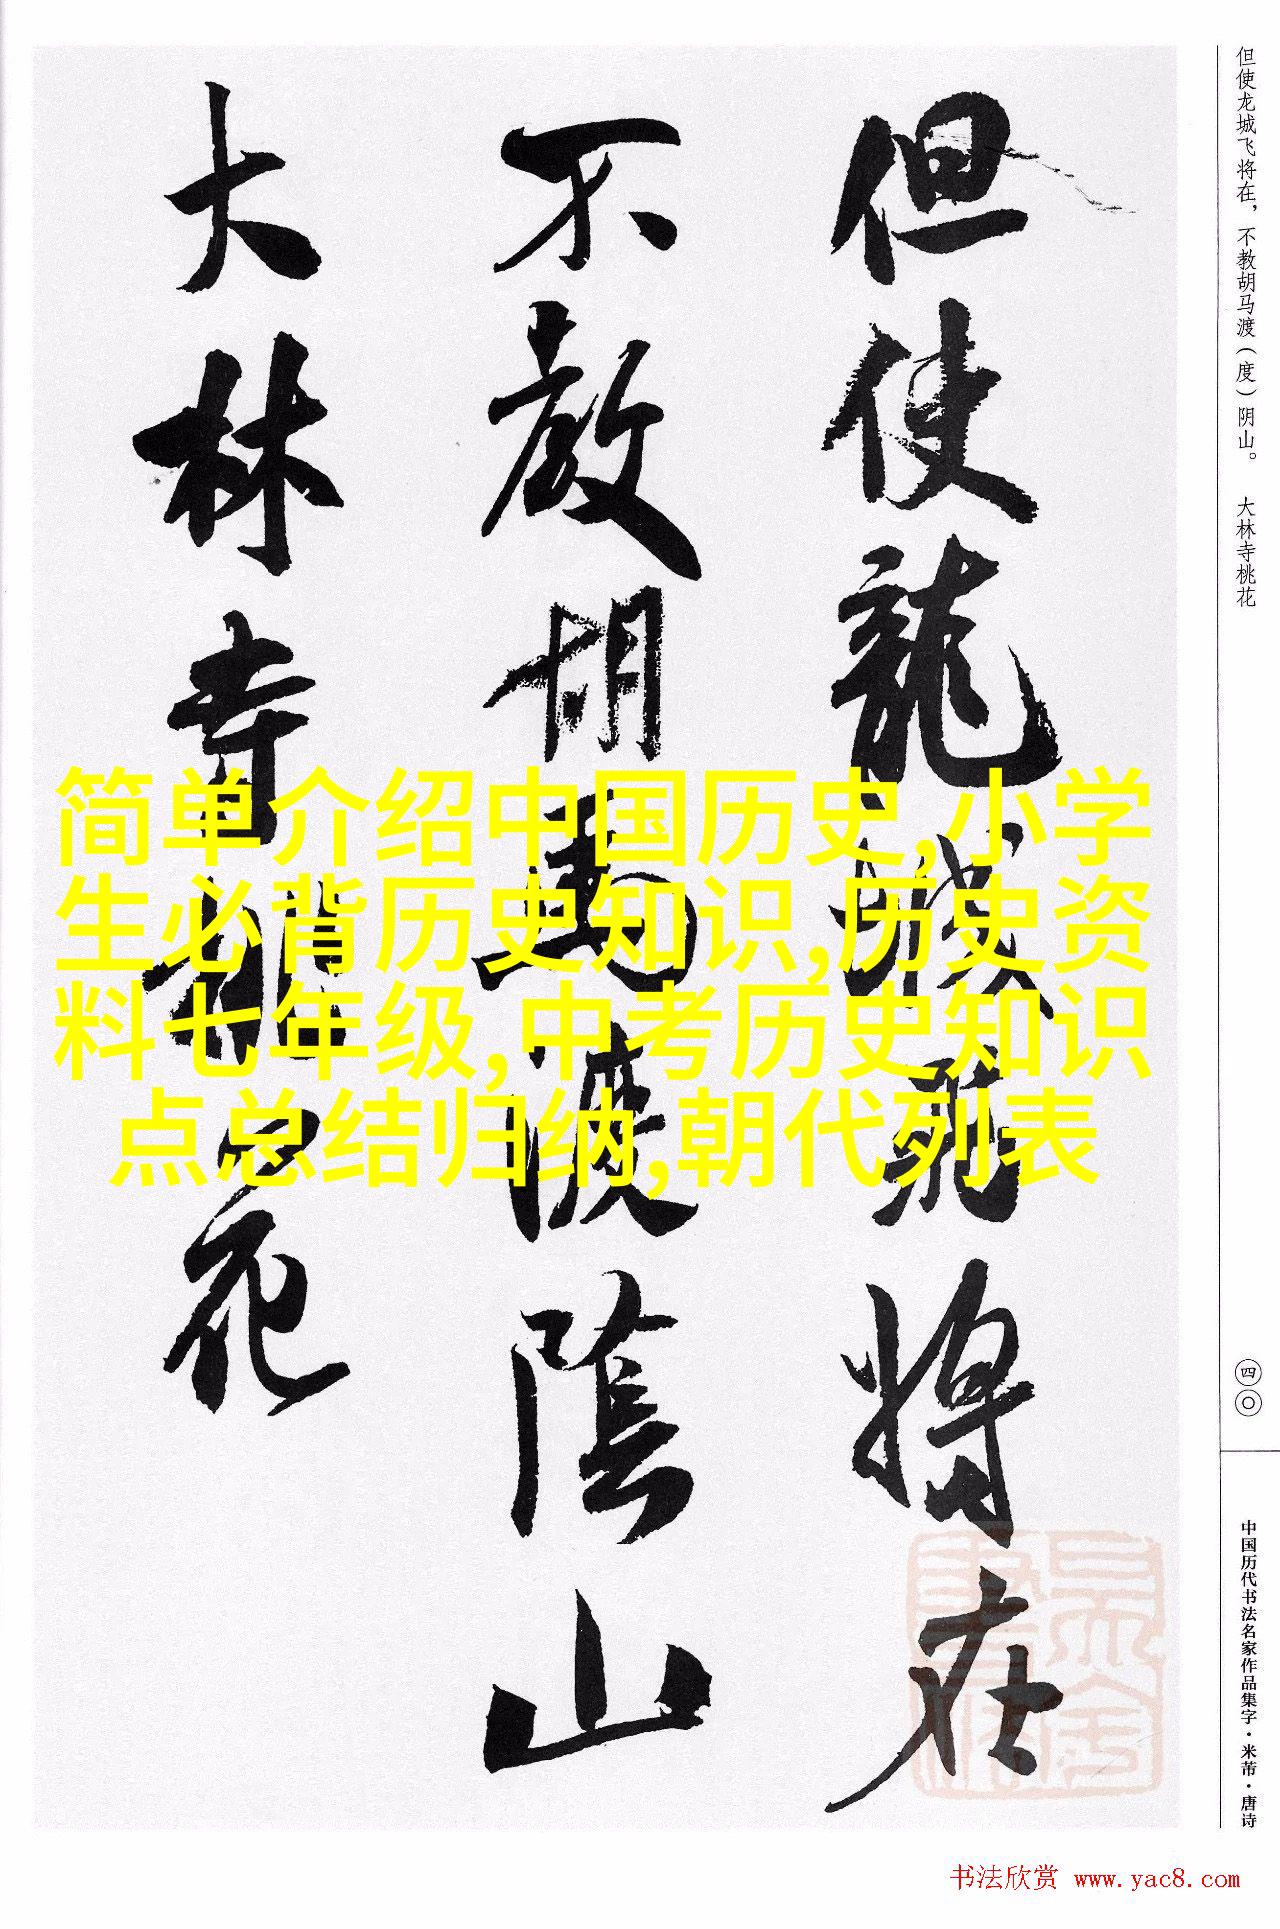 但使龙城飞将在，不教胡马渡（度）阴山。 大林寺桃花
但使龍城飛将在
不教胡馬渡陰山
大林寺桃花
简单介绍中国历史,小学
生必背历史知识,历史资
料七年级,中考历史知识
点总结归纳,朝代列表
四〇
中国历代书法名家作品集字·米芾·唐诗
书法欣赏 www.yac8.com